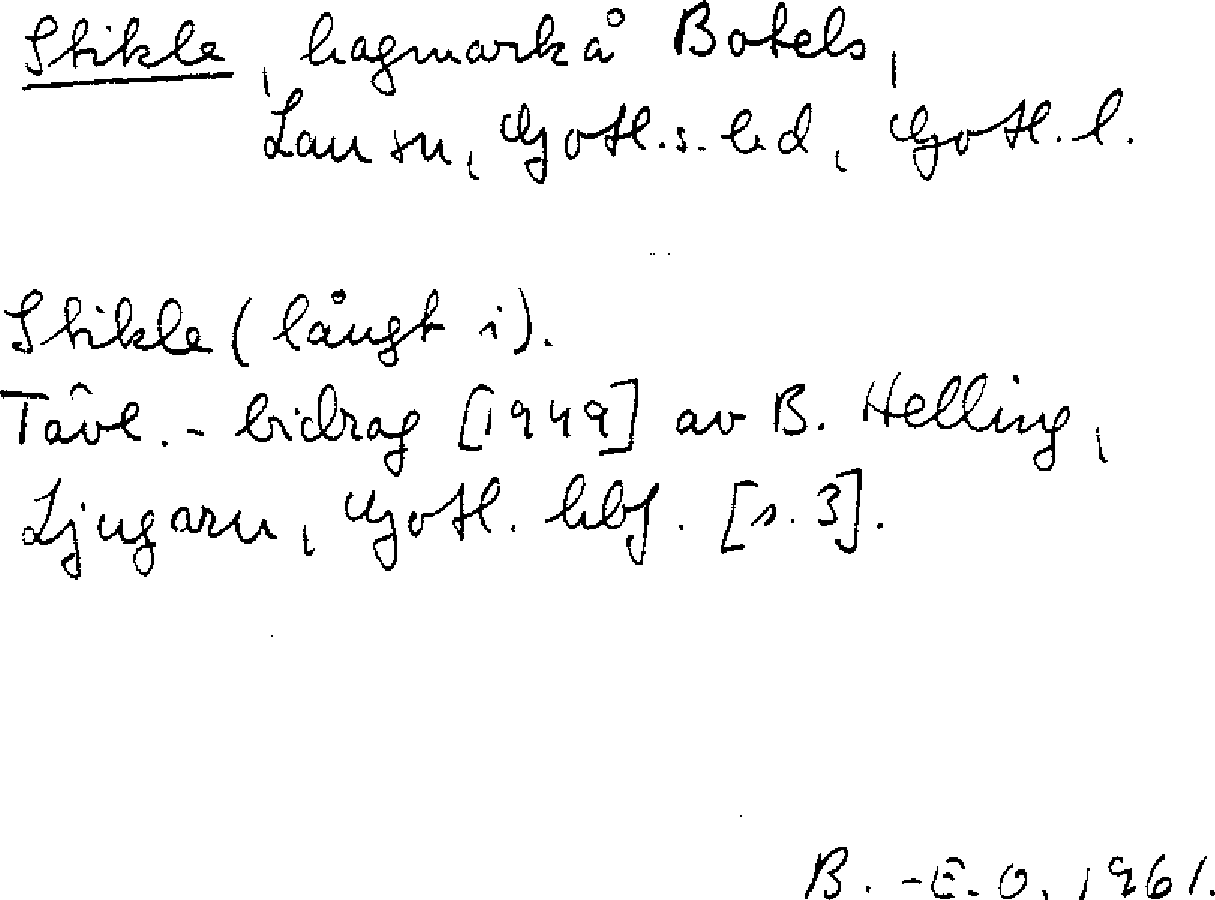 Stikle, hagmark å Botels,
Lau sn, Gotl.s. hd, Gotl. l.
Stikle (långt i).
Tävl.- bidrag [1949] av B. Helling,
Ljugarn, Gotl. hbf. [s. 3].
B.-E. O. 1961.